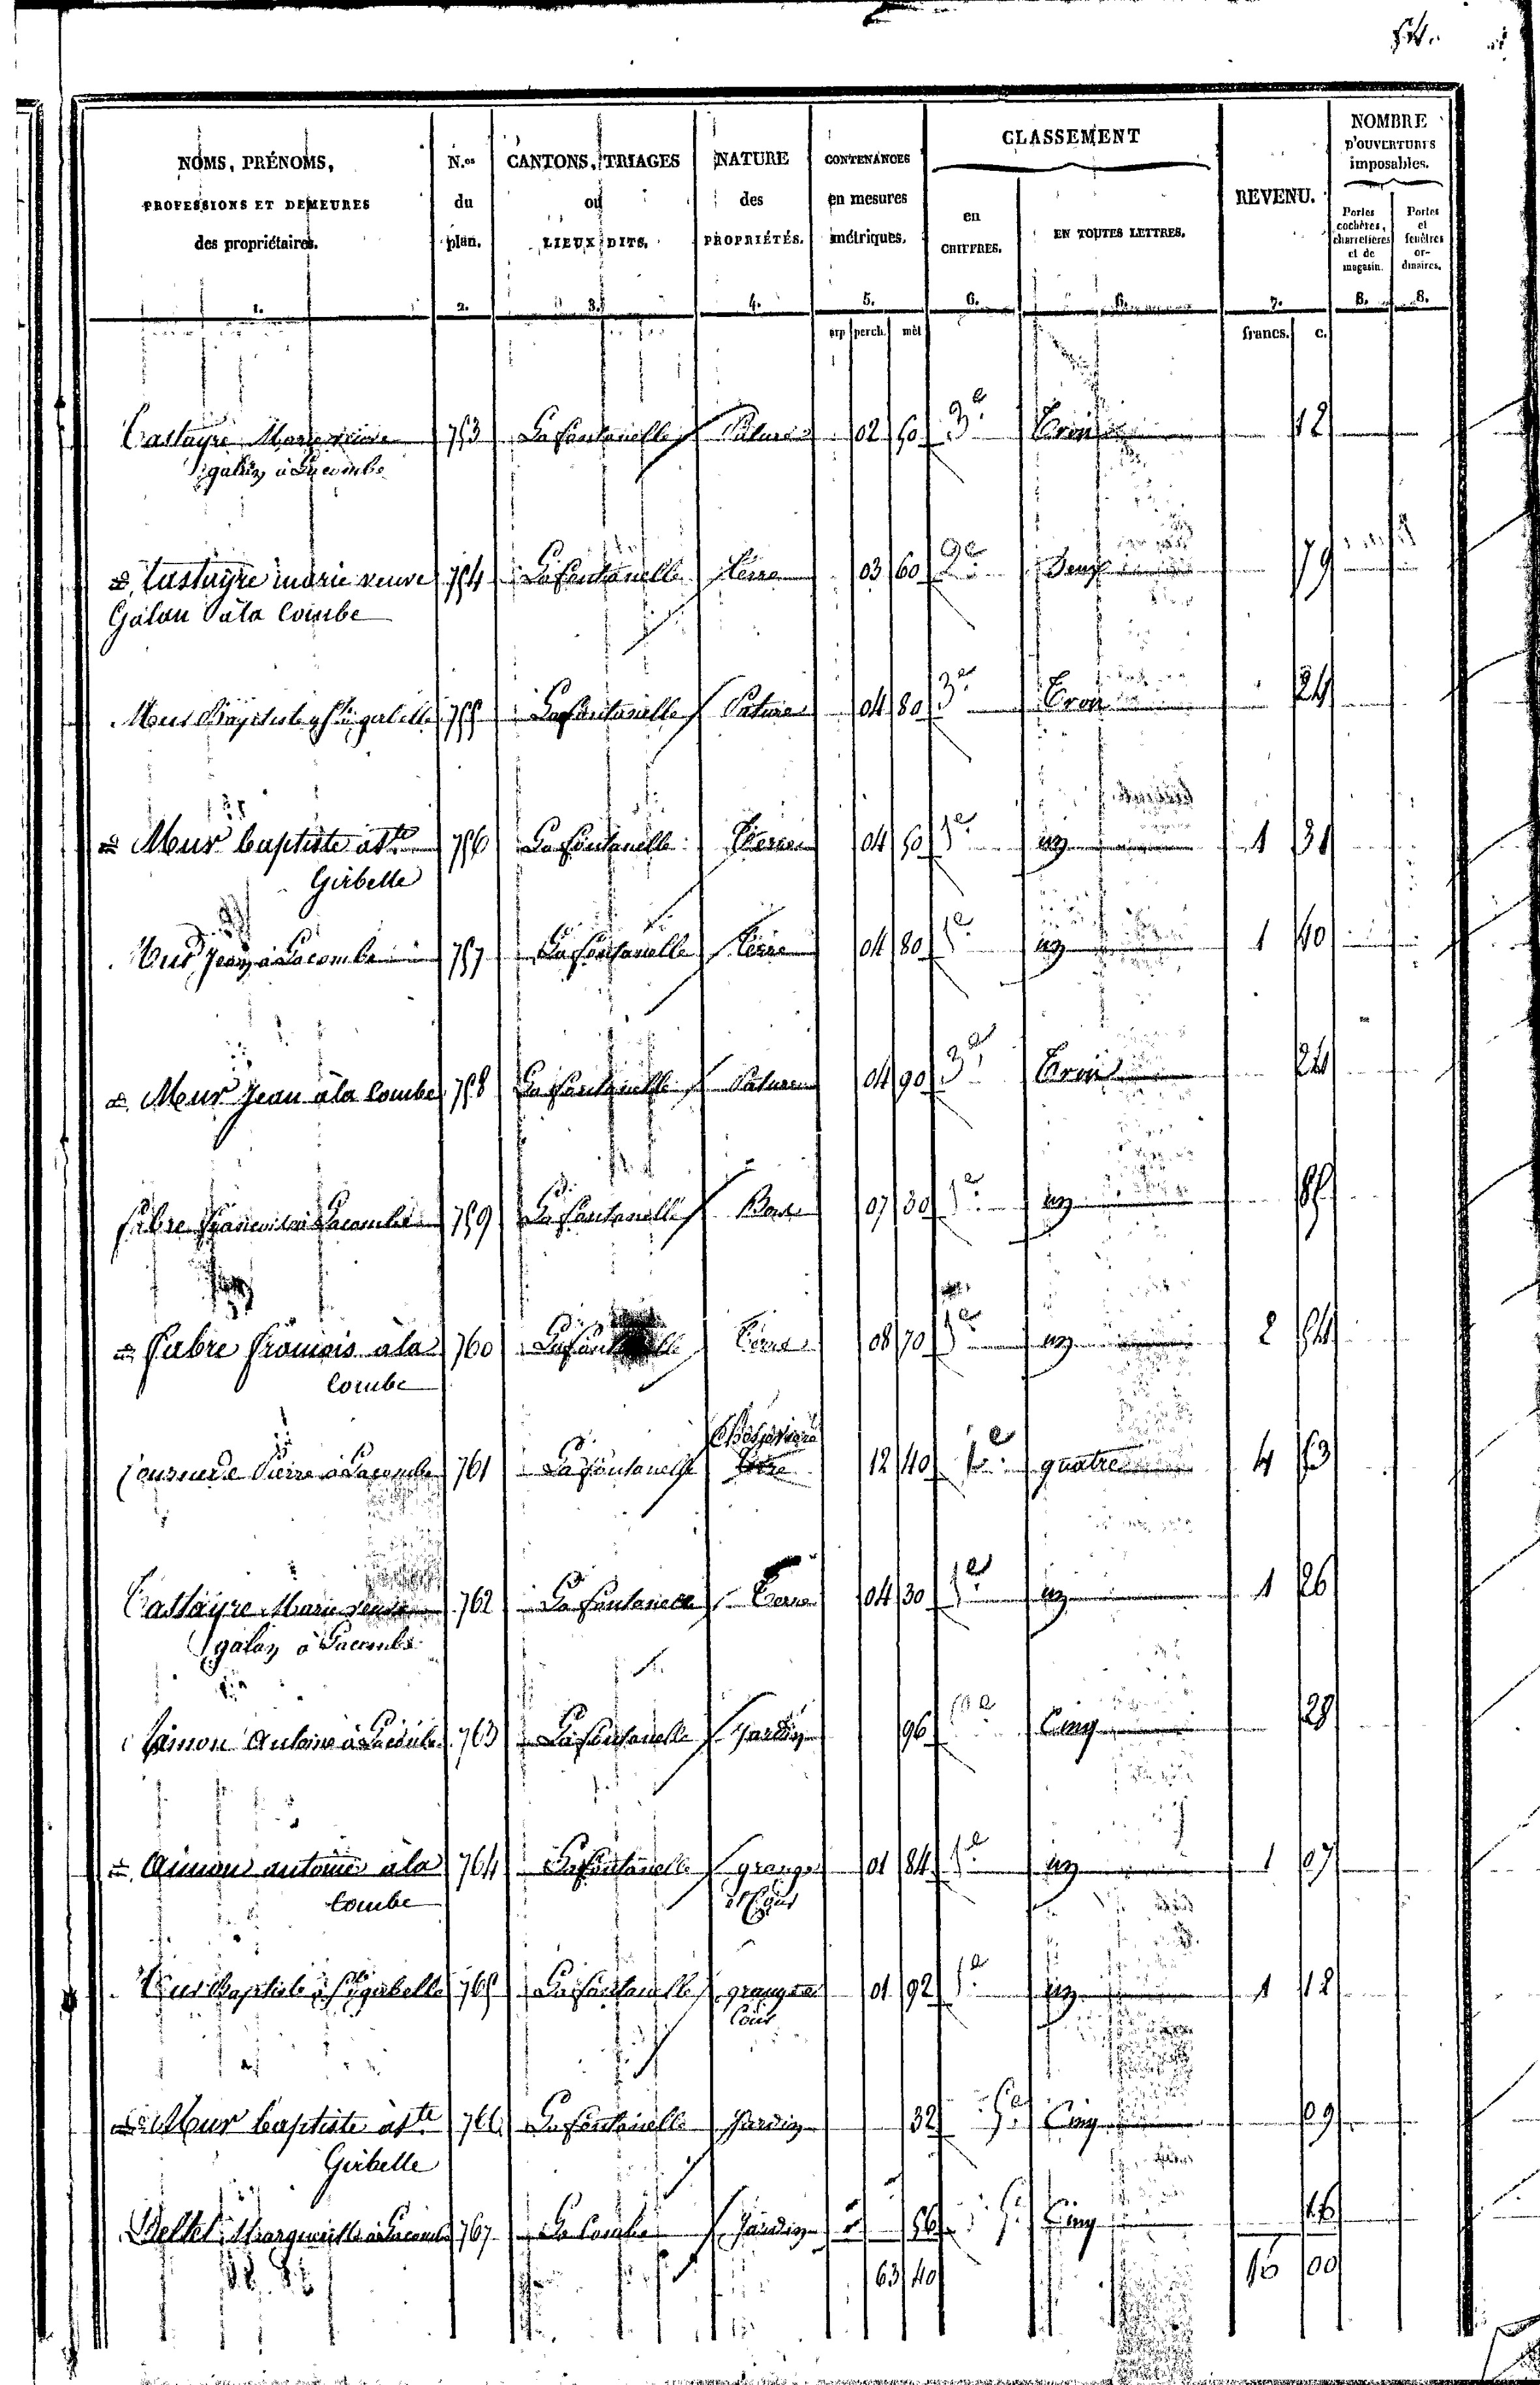 54.
NOMS, PRÉNOMS, PROFESSIONS ET DEMEURES des propriétaires.
N.os du plan.
CANTONS, TRIAGES ou LIEUX DITS.
NATURE des PROPRIÉTÉS.
CONTENANCES en mesures métriques.
CLASSEMENT
en CHIFFRES.
EN TOUTES LETTRES.
REVENU.
NOMBRE D'OUVERTURES imposables.
Portes cochères, charretières et de magasin.
Portes et fenêtres ordinaires.
1. 2. 3. 4. 5. 6. 6. 7. 8. 8.
arp perch. mèt francs. c.
Castayre Marie veuve 753 La fontanelle Pature 02 50 3e Trois 12
galan à Lacombe
Castayre marie veuve 754 La fontanelle terre 03 60 2e Deux 79
Galan à la Combe
Mur Baptiste à Ste girbelle 755 La fontanelle Pature 04 80 3e Trois 24
Mur baptiste à Ste 756 La fontanelle Terre 04 50 1e un 1 31
Girbelle
Mur Jean à Lacombe 757 La fontanelle terre 04 80 1e un 1 40
Mur Jean à la Combe 758 La fontanelle Pature 04 90 3e Trois 24
fabre francois à Lacombe 759 La fontanelle 07 30 1e un
fabre francois à la 760 La fontanelle Terre 08 70 1e un 2 54
Combe
Pierre à Lacombe 761 La fontanelle terre 12 40 quatre 4 53
Castayre Marie veuve 762 La fontanelle Terre 04 30 1e un 1 26
galan à Lacombe
aimon Antoine à Lacombe 763 La fontanelle Jardin 96 Cinq 28
aimon antoine à la 764 La fontanelle grange 01 84 1e un 1 07
Combe et Cour
Mur Baptiste à Ste girbelle 765 La fontanelle grange et 01 92 1e un 1 12
Cour
Mur baptiste à Ste 766 La fontanelle Jardin 32 5e Cinq 09
Girbelle
Marguerite à Lacombe 767 La Combe Jardin 56 5e Cinq 16
63 40 16 00